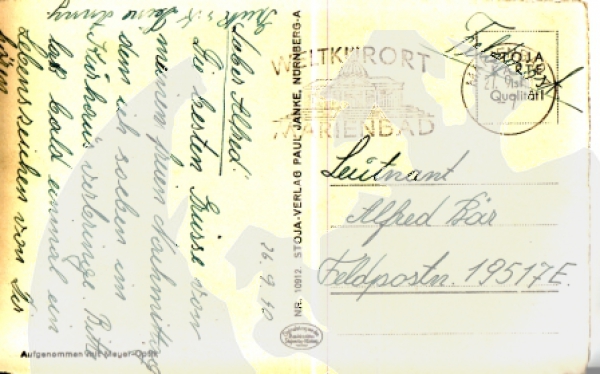 26.9.40
Lieber Alfred!
Die besten Grüsse von
meinem freien Nachmittag
den ich soeben im
Kurhaus verbringe. Bitte
lass bald einmal ein
Lebenszeichen von Dir
hören
Gruss
Feldpost
WELTKURORT
MARIENBAD
STOJA
KARTE
Qualität!
Leutnant
Alfred Bär
Feldpostn. 19517E.
NR. 10912. STOJA-VERLAG PAUL JANKE, NÜRNBERG-A
Aufgenommen mit Meyer-Optik